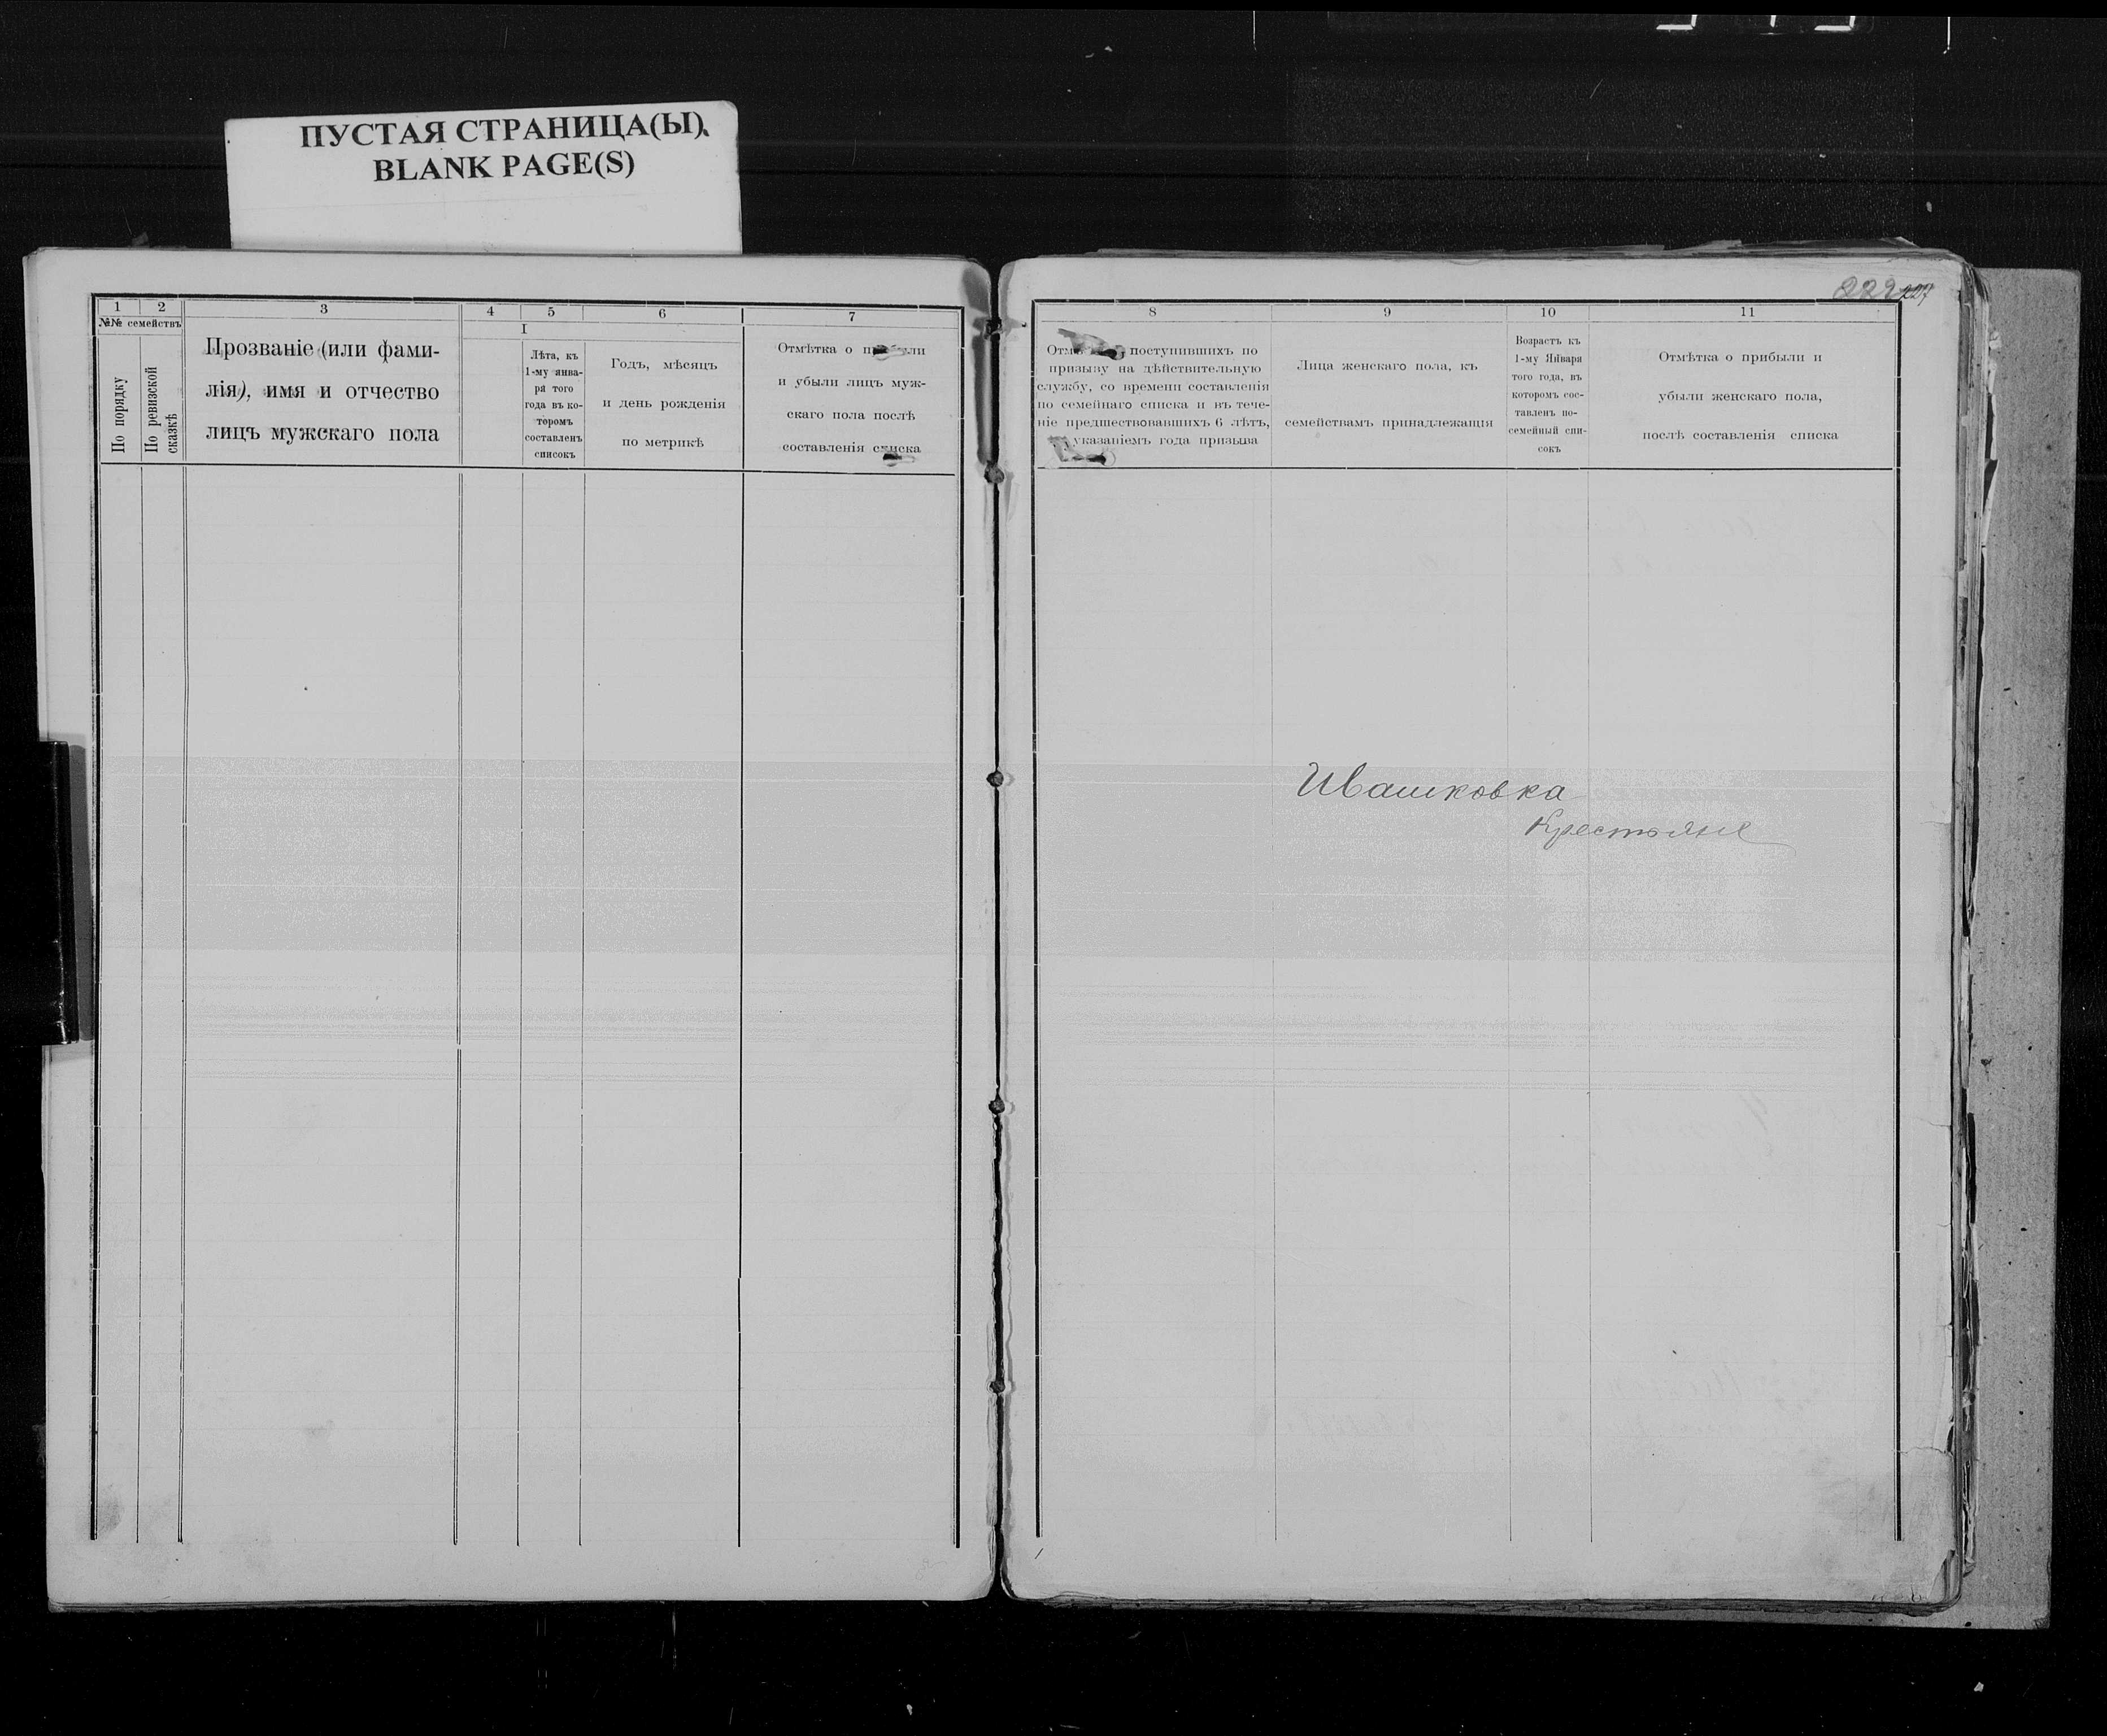 ПУСТАЯ СТРАНИЦА(Ы)
BLANK PAGE(S)
1
2
3
4
5
6
7
№№ семействъ
По порядку
По ревизской
сказкѣ
Прозваніе (или фами-
лія), имя и отчество
лицъ мужскаго пола
I
Лѣта, къ
1-му янва-
ря того
года въ ко-
торомъ
составленъ
списокъ
Годъ, мѣсяцъ
и день рожденія
по метрикѣ
Отмѣтка о прибыли
и убыли лицъ муж-
скаго пола послѣ
составленія списка
227
8
9
10
11
поступившихъ по
призыву на дѣйствительную
службу, со времени составленія
по семейнаго списка и въ тече-
ніе предшествовавшихъ 6 лѣтъ,
указаніемъ года призыва
Лица женскаго пола, къ
семействамъ принадлежащія
Возрастъ къ
1-му Января
того года, въ
которомъ сос-
тавленъ по-
семейный спи-
сокъ
Отмѣтка о прибыли и
убыли женскаго пола,
послѣ составленія списка
Ивашковка
Крестьяне